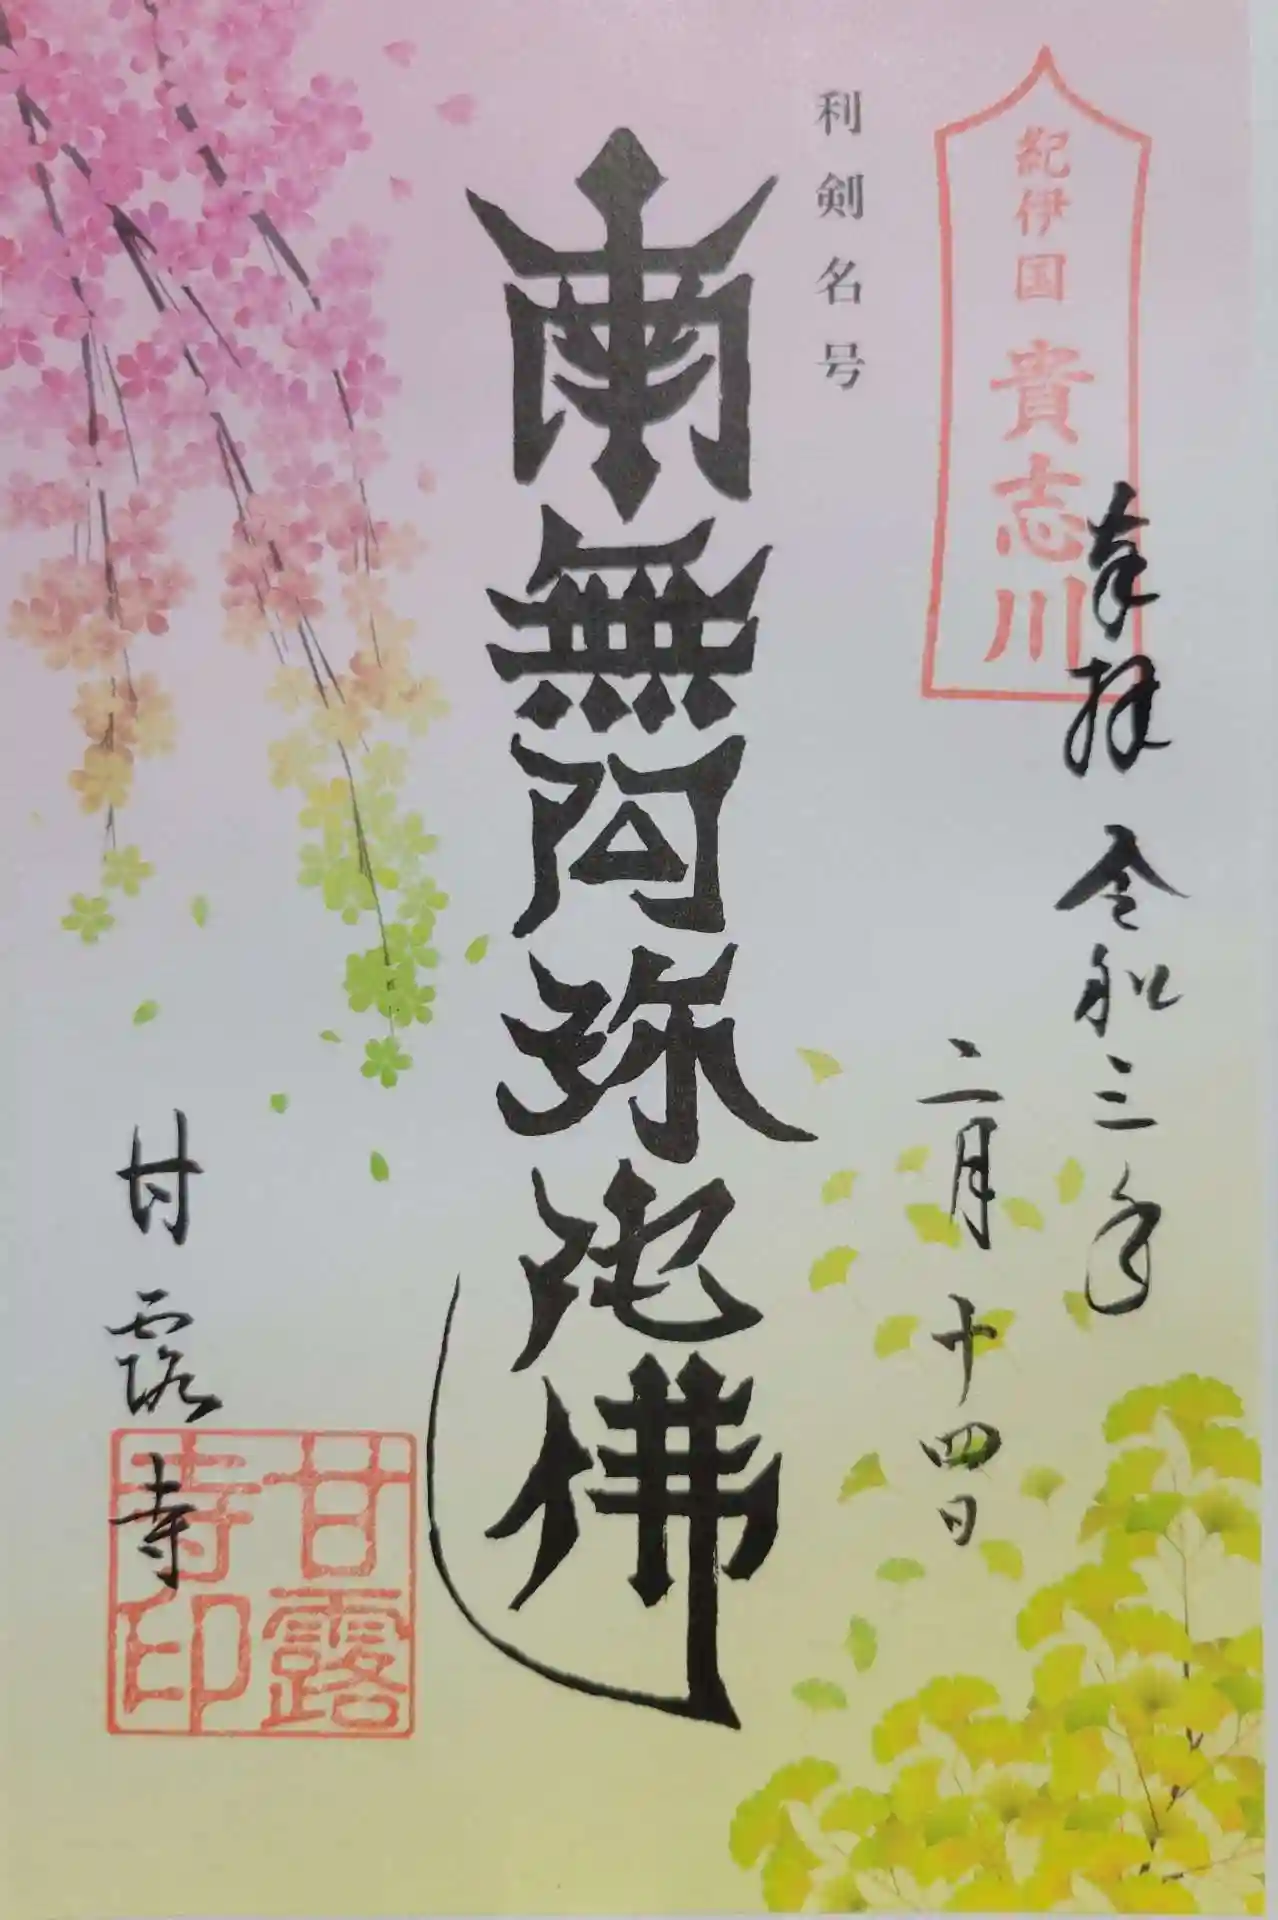 紀伊国 貴志川
奉拝 令和三年
二月十四日
利剣名号
南無阿弥陀佛
甘露寺
甘露寺印